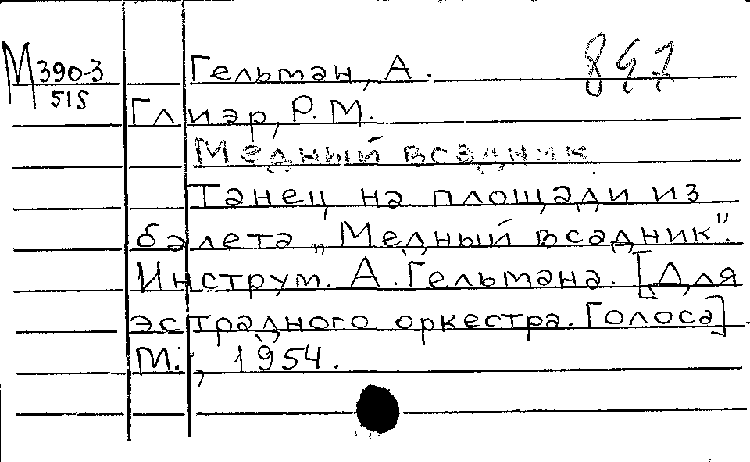 М 390-3 Гельман, А. 857
515
Глиэр, Р. М.
Медный всадник
Танец на площади из
балета „Медный всадник".
Инструм. А. Гельмана. [Для
эстрадного оркестра. Голоса]
М., 1954.